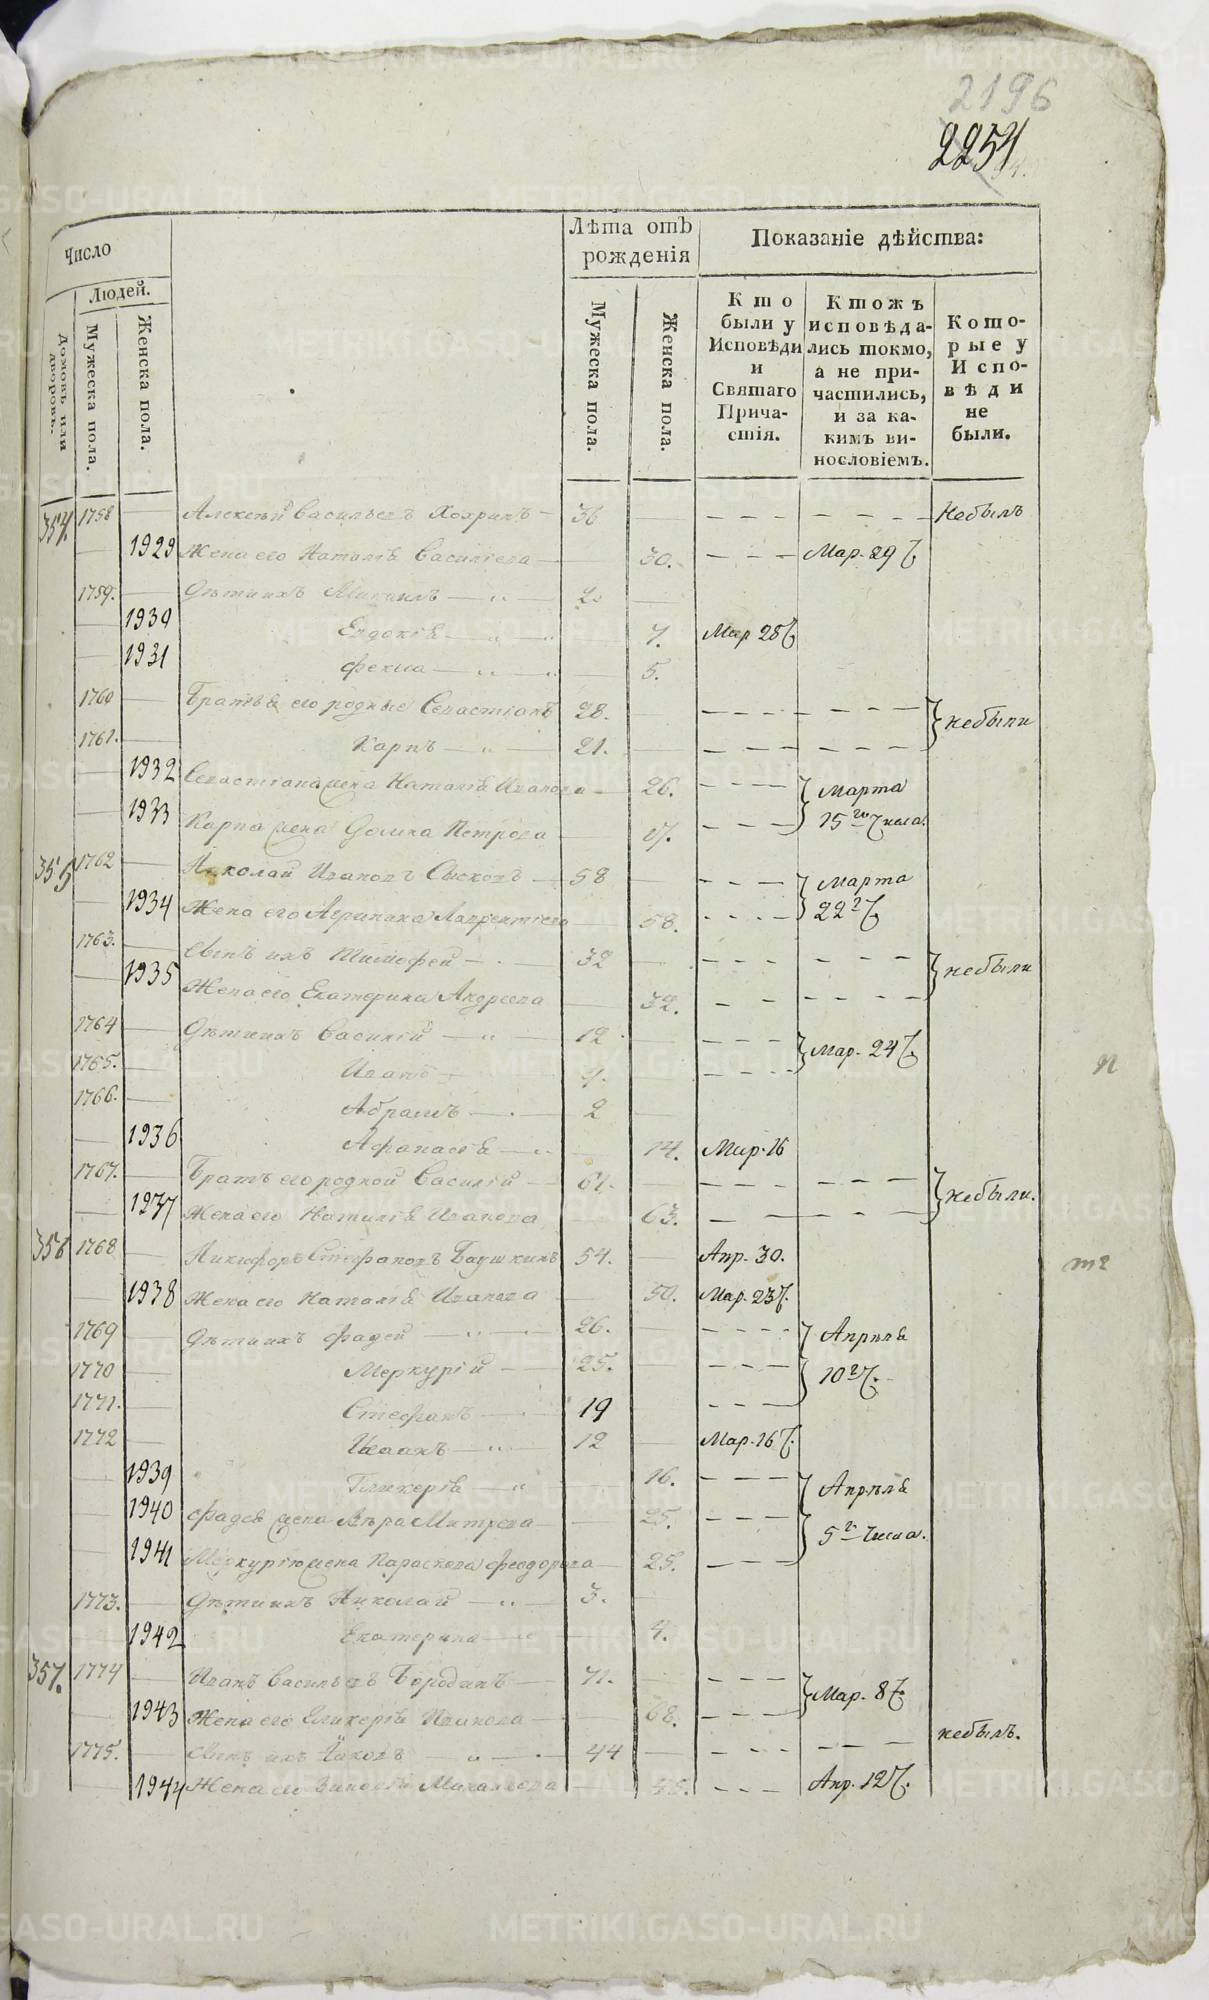 2196
2254
Число
Лѣта отъ рожденія
Показаніе дѣйства:
Людей.
Домовъ или дворовъ.
Мужеска пола.
Женска пола.
Мужеска пола.
Женска пола.
Кто были у Исповѣди и Святаго Причастія.
Ктожъ исповѣдались токмо, а не причастились, и за какимъ винословіемъ.
Которые у Исповѣди не были.
354. 1758 Алексѣй Васильевъ Хохринъ 36 Небылъ
1929 Жена его Наталія Василіева 30. Мар. 29 Ч.
1759. Дѣти ихъ Михаилъ 2
1939 Евдокія 7. Мар 28 Ч.
1931 Фекла 5.
1760 Братья его родные Севастіанъ 28. небыли
1761. Карпъ 21.
1932 Севастіана жена Наталія Иванова 26. Марта
1933 Карпа жена Петрова 15 го Числа.
355 1762 Николай Ивановъ Сысковъ 58 Марта
1934 Жена его Лаврентіева 58. 22 г Ч.
1763. Сынъ ихъ Тимофей 32 небыли
1935 Жена его Екатерина Андреева 32.
1764 Дѣти ихъ Василій 12 Мар. 24 Ч.
1765. Иванъ 4.
1766. Абрамъ 2
1936 Афанасія 14. Мар. 16
1767. Братъ его родной Василій 61. небыли.
1937 Жена его Наталія Иванова 63.
356 1768 Никифоръ Стефановъ Баушкинъ 54. Апр. 30.
1938 Жена его Наталія Иванова 50. Мар. 23 Ч.
1769 Дѣти ихъ Фадей 26. Апрѣля
1770 Меркурій 25. 10 г Ч.
1771. Стефанъ 19
1772 Исаакъ 12 Мар. 16 Ч.
1939 Гликерія 16. Апрѣля
1940 Фадея жена Вѣра Митрева 25. 5 г Числа.
1941 Меркурію жена Параскева Феодорова 25.
1773. Дѣти ихъ Николай 3.
1942 Екатерина 4.
357. 1774 Иванъ Васильевъ Бородинъ 71. Мар. 8 Ч.
1943 Жена его Гликерія Иванова 68.
1775. Сынъ ихъ Іаковъ 44 небылъ.
1944 Жена его Михайлова 45. Апр. 12 Ч.
METRIKI.GASO-URAL.RU